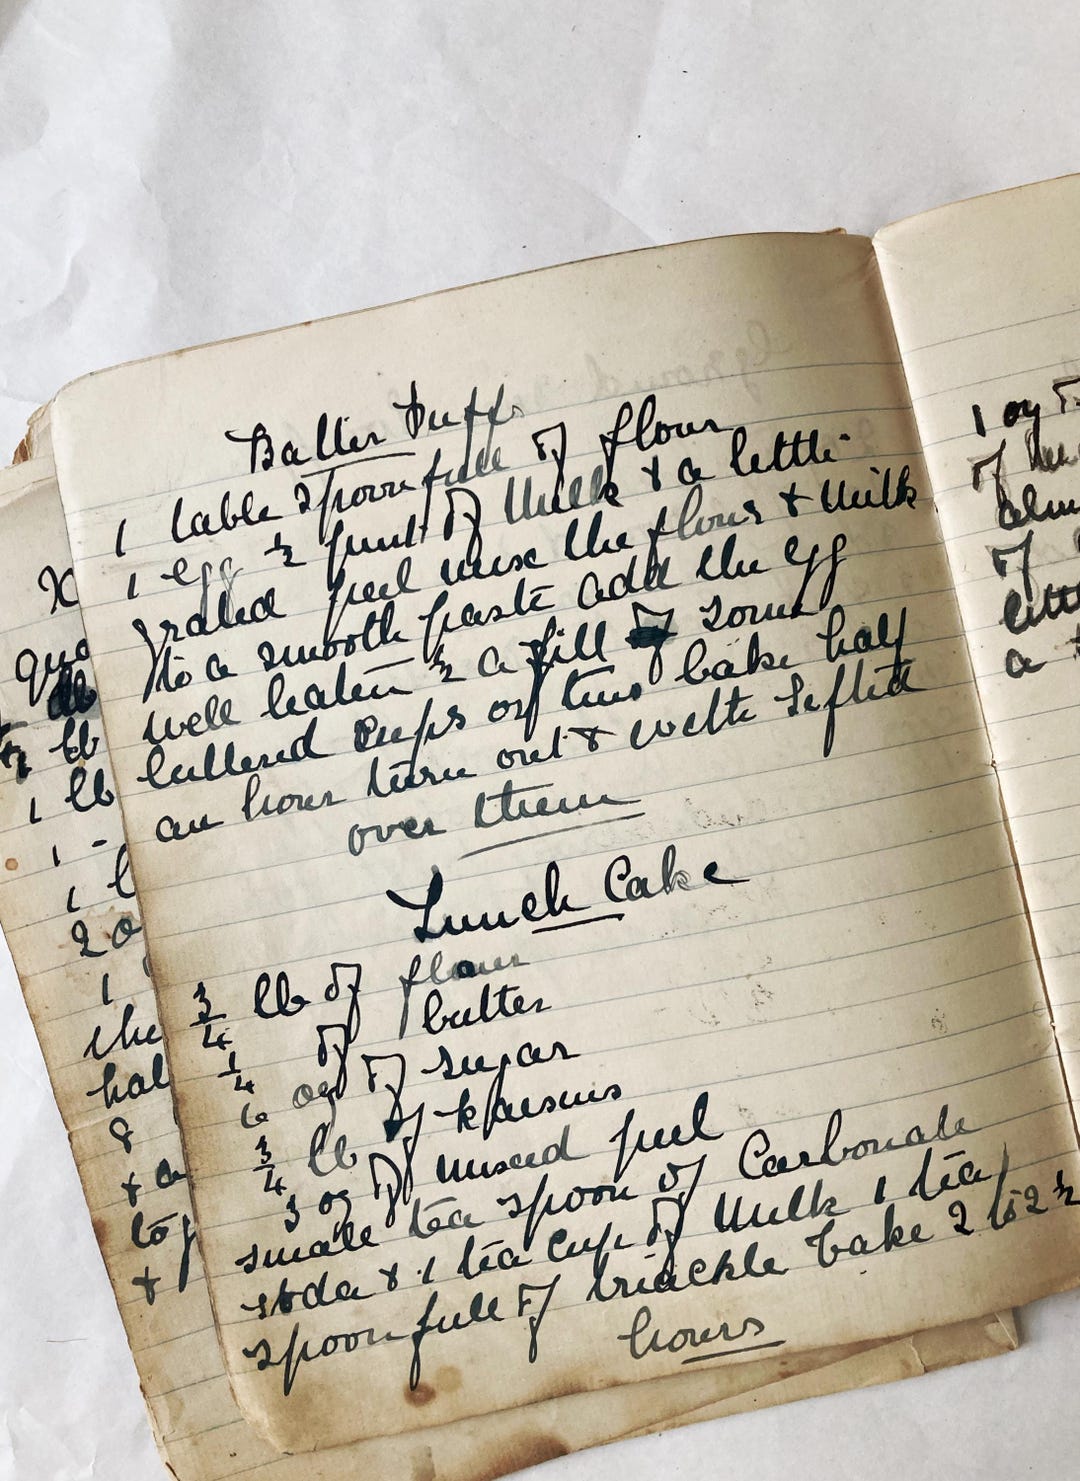 Batter Puffs
1 table spoonfull of flour
1 egg ½ pint of Milk & a little
grated peel mix the flour & Milk
to a smooth paste add the egg
well beaten ½ a fill some
buttered cups or tins bake half
an hour turn out & with sifted
over them
Lunch Cake
¾ lb of flour
¼ of butter
6 oz of sugar
¾ lb of raisins
3 oz of mixed peel
small tea spoon of Carbonate
soda & 1 tea cup of Milk 1 tea
spoonfull of triackle bake 2 to 2 ½
hours
X
lb
½ lb
1 lb
1 -
1 l
2 o
1
the
hal
8
& a
tog
&
1 oz of
of
alm
of
litt
a